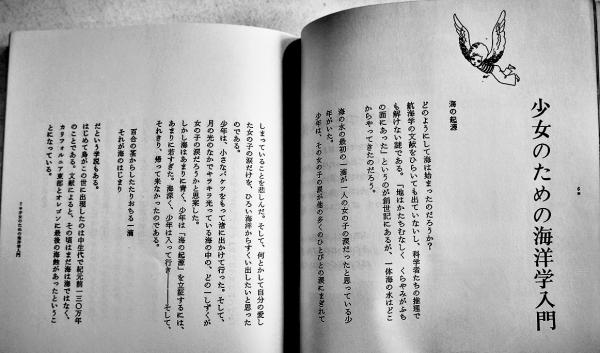 少女のための海洋学入門
海の起源
どのようにして海は始まったのだろうか?
航海学の文献をひらいても出ていないし、科学者たちの推理で
も解けない謎である。「地はかたちむなしく くらやみがふち
の面にあった」というのが創世記にあるが、一体海の水はどこ
からやってきたのだろう。
海の水の最初の一滴が一人の女の子の涙だったと思っている少
年がいた。
少年は、その女の子の涙が他の多くのひとびとの涙にまぎれて
しまっていることを悲しんだ。そして、何とかして自分の愛し
た女の子の涙だけを、ひろい海洋からすくい出したいと思った
のである。
少年は、小さなバケツをもって渚に出かけて行った。そして、
月の光のなかでキラキラ光っている海の中の、どの一しずくが
女の子の涙だろうかと思案した。
しかし海はあまりに青く、少年は「海の起源」を立証するには、
あまりに若すぎた。海深く、少年は入って行き――そして、
それきり、帰って来なかったのである。
百合の茎からしたたりおちる一滴
それが海のはじまり
だという学説もある。
はじめて鳥がこの世に出現したのは中生代で紀元前一三〇万年
のことである。文献によると、その頃はまだ海は海ではなく、
カリフォルニア東部とオレゴンに最後の海鞘があったというこ
とになっている。